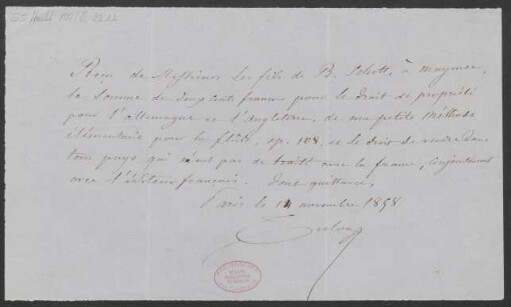 Reçu de Messieurs les fils de B. Schott, à Mayence,
la somme de cents francs pour le droit de propriété
pour l'allemagne et l'angleterre, de ma petite Méthode
élémentaire pour la flûte, op. 108, et le droit de vendre dans
tous pays qui n'ont pas de traité avec la france, conjointement
avec l'éditeur français. Dont quittance,
Paris le 14 novembre 1858